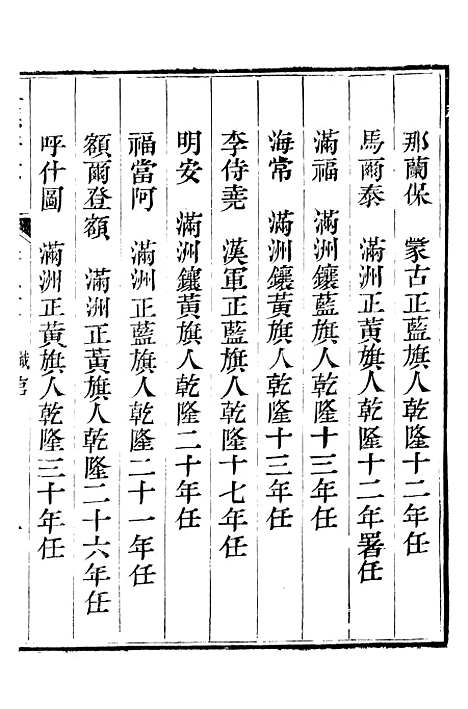 那蘭保　蒙古正藍旗人乾隆十二年任
馬爾泰　滿洲正黃旗人乾隆十二年署任
滿福　滿洲鑲藍旗人乾隆十三年任
海常　滿洲鑲黃旗人乾隆十三年任
李侍堯　漢軍正藍旗人乾隆十七年任
明安　滿洲鑲黃旗人乾隆二十年任
福當阿　滿洲正藍旗人乾隆二十一年任
額爾登額　滿洲正黃旗人乾隆二十六年任
呼什圖　滿洲正黃旗人乾隆三十年任
職官